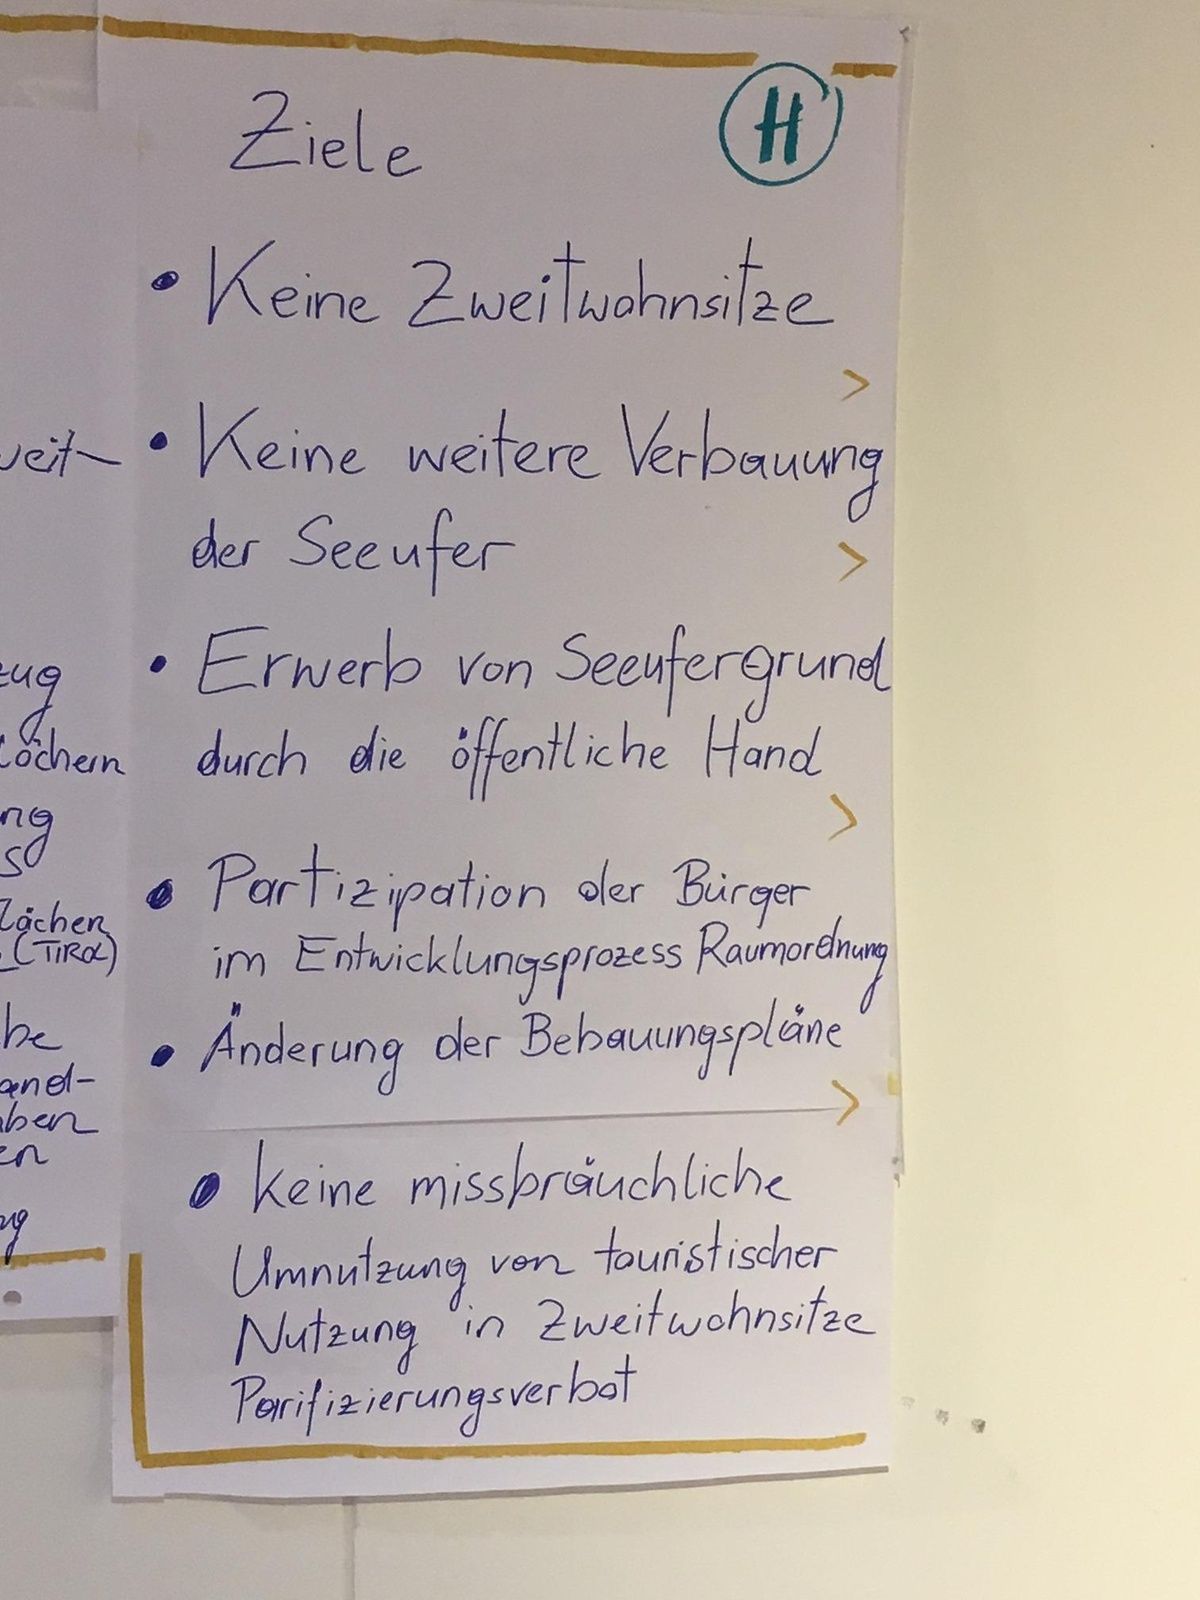 Ziele
H
• Keine Zweitwohnsitze
>
• Keine weitere Verbauung
der Seeufer
>
• Erwerb von Seeufergrund
durch die öffentliche Hand
>
• Partizipation der Bürger
im Entwicklungsprozess Raumordnung
• Änderung der Bebauungspläne
>
• keine missbräuchliche
Umnutzung von touristischer
Nutzung in Zweitwohnsitze
Parifizierungsverbot
veit-
zug
löchern
ng
s
lächen
(TIROL)
be
and-
aben
en
ng